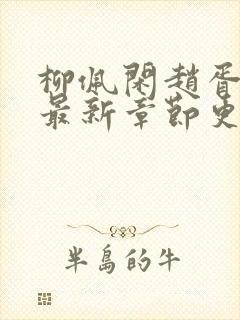 柳佩閑趙胥
最新章節史
半島的牛